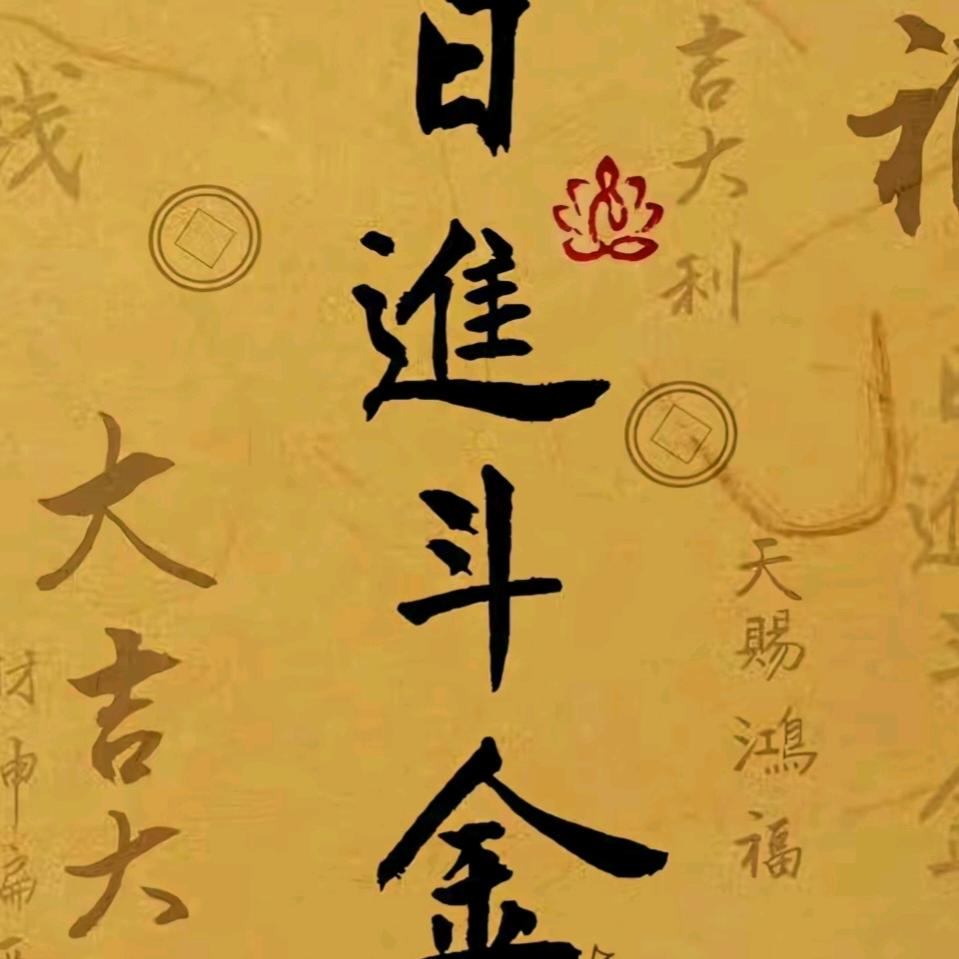 日進斗金
吉大利
天賜鴻福
大吉大